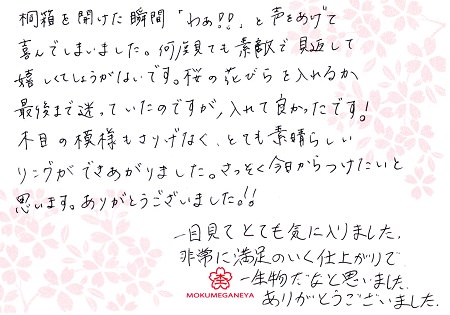 桐箱を開けた瞬間「わぁ!!」と声をあげて
喜んでしまいました。何度見ても素敵で見返して
嬉しくてしょうがないです。桜の花びらを入れるか
最後まで迷っていたのですが、入れて良かったです!
木目の模様もさりげなく、とても素晴らしい
リングができあがりました。さっそく今日からつけたいと
思います。ありがとうございました。!!
一目見てとても気に入りました。
非常に満足のいく仕上がりで
一生物だなと思いました。
ありがとうございました。
MOKUMEGANEYA